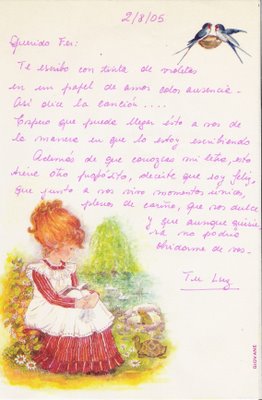 2/8/05
Querido Fer:
Te escribo con tinta de violetas
en un papel de amor color ausencia.
Así dice la canción....
Espero que pueda llegar ésto a vos de
la manera en que lo estoy escribiendo
Además de que conozcas mi letra, esto
tiene otro propósito, decirte que soy feliz,
que junto a vos vivo momentos únicos,
plenos de cariño, que sos dulce
y que aunque quisie
ra no podría
olvidarme de vos.-
Tu Luz
GIOVANE